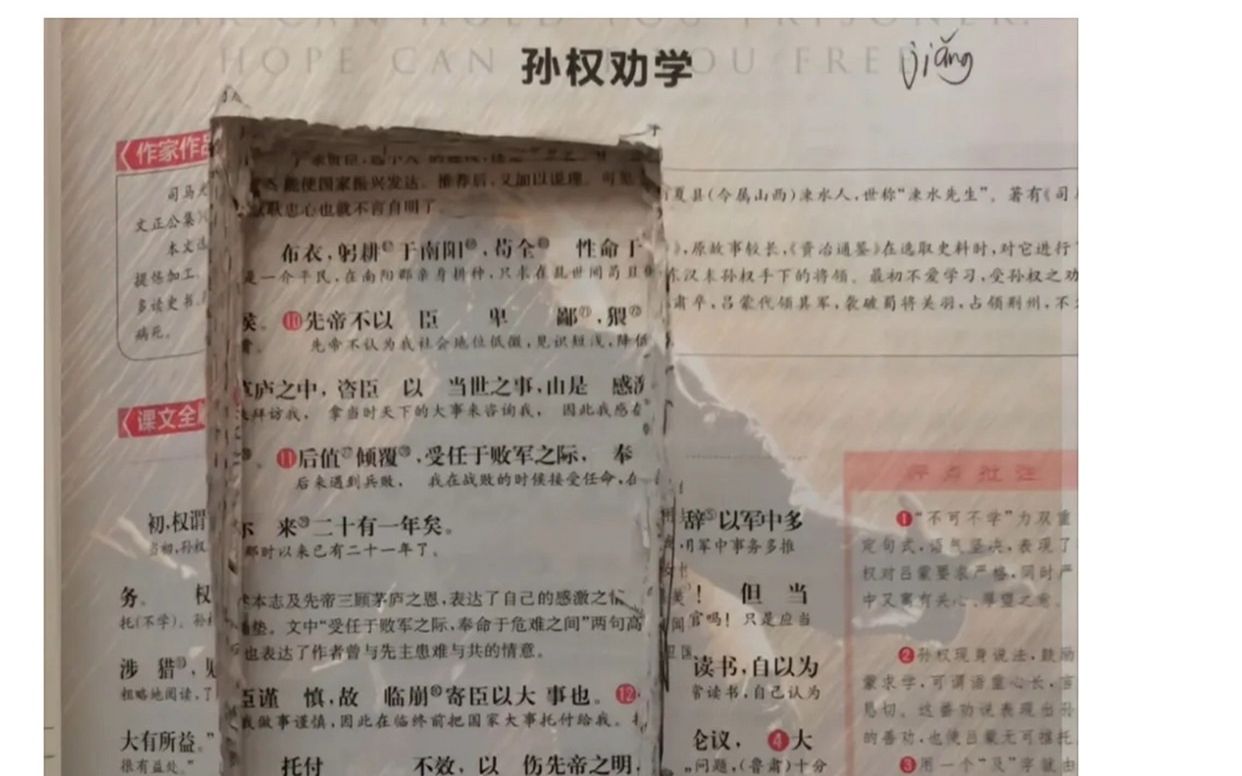 HOPE CAN
孙权劝学
OU FREE
jiǎng
作家作品
能使国家振兴发达。推荐后,又加以说理。可
献忠心也就不言自明了。
司马光
夏县(今属山西)涑水人,世称“涑水先生”。著有《司马
文正公集
布衣,躬耕于南阳,苟全 性命于
本文选
》,原故事较长,《资治通鉴》在选取史料时,对它进行了
是一介平民,在南阳郡亲身耕种,只求在乱世间苟且
提炼加工。
东汉末孙权手下的将领。最初不爱学习,受孙权之劝
多读史书
肃卒,吕蒙代领其军,袭破蜀将关羽,占领荆州,不久
病死。
侯。⑩先帝不以 臣 卑 鄙㉑,猥㉒
先帝不认为我社会地位低微,见识短浅,降低
草庐之中,咨臣 以 当世之事,由是 感激
拜访我, 拿当时天下的大事来咨询我, 因此我感
课文全解
⑪后值倾覆,受任于败军之际, 奉
后来遇到兵败, 我在战败的时候接受任命,在
评点批注
初,权谓
当初,孙权
尔 来二十有一年矣。
那时以来已有二十一年了。
辞⑤以军中多
军中事务多推
❶“不可不学”为双重
定句式,语气坚决,表现了
权对吕蒙要求严格,同时严
中又寓有关心、厚望之意。
务。 权
托(不学)。孙
述本志及先帝三顾茅庐之恩,表达了自己的感激之情
铺垫。文中“受任于败军之际,奉命于危难之间”两句高
也表达了作者曾与先主患难与共的情意。
! 但 当
官吗!只是应当
涉 猎, 见
粗略地阅读,了
臣谨 慎,故 临崩寄臣以大 事也。⑫
我做事谨慎,因此在临终前把国家大事托付给我。
读书,自以为
常读书,自己认为
❷孙权现身说法,鼓励
蒙求学,可谓语重心长,言
恳切。这番劝说表现出孙
的善劝,也使吕蒙无可推托
大有所益。”
很有益处。”
托付 不效, 以 伤先帝之明,
论议, ❹大
问题,(鲁肃)十分
❸用一个“及”字就由